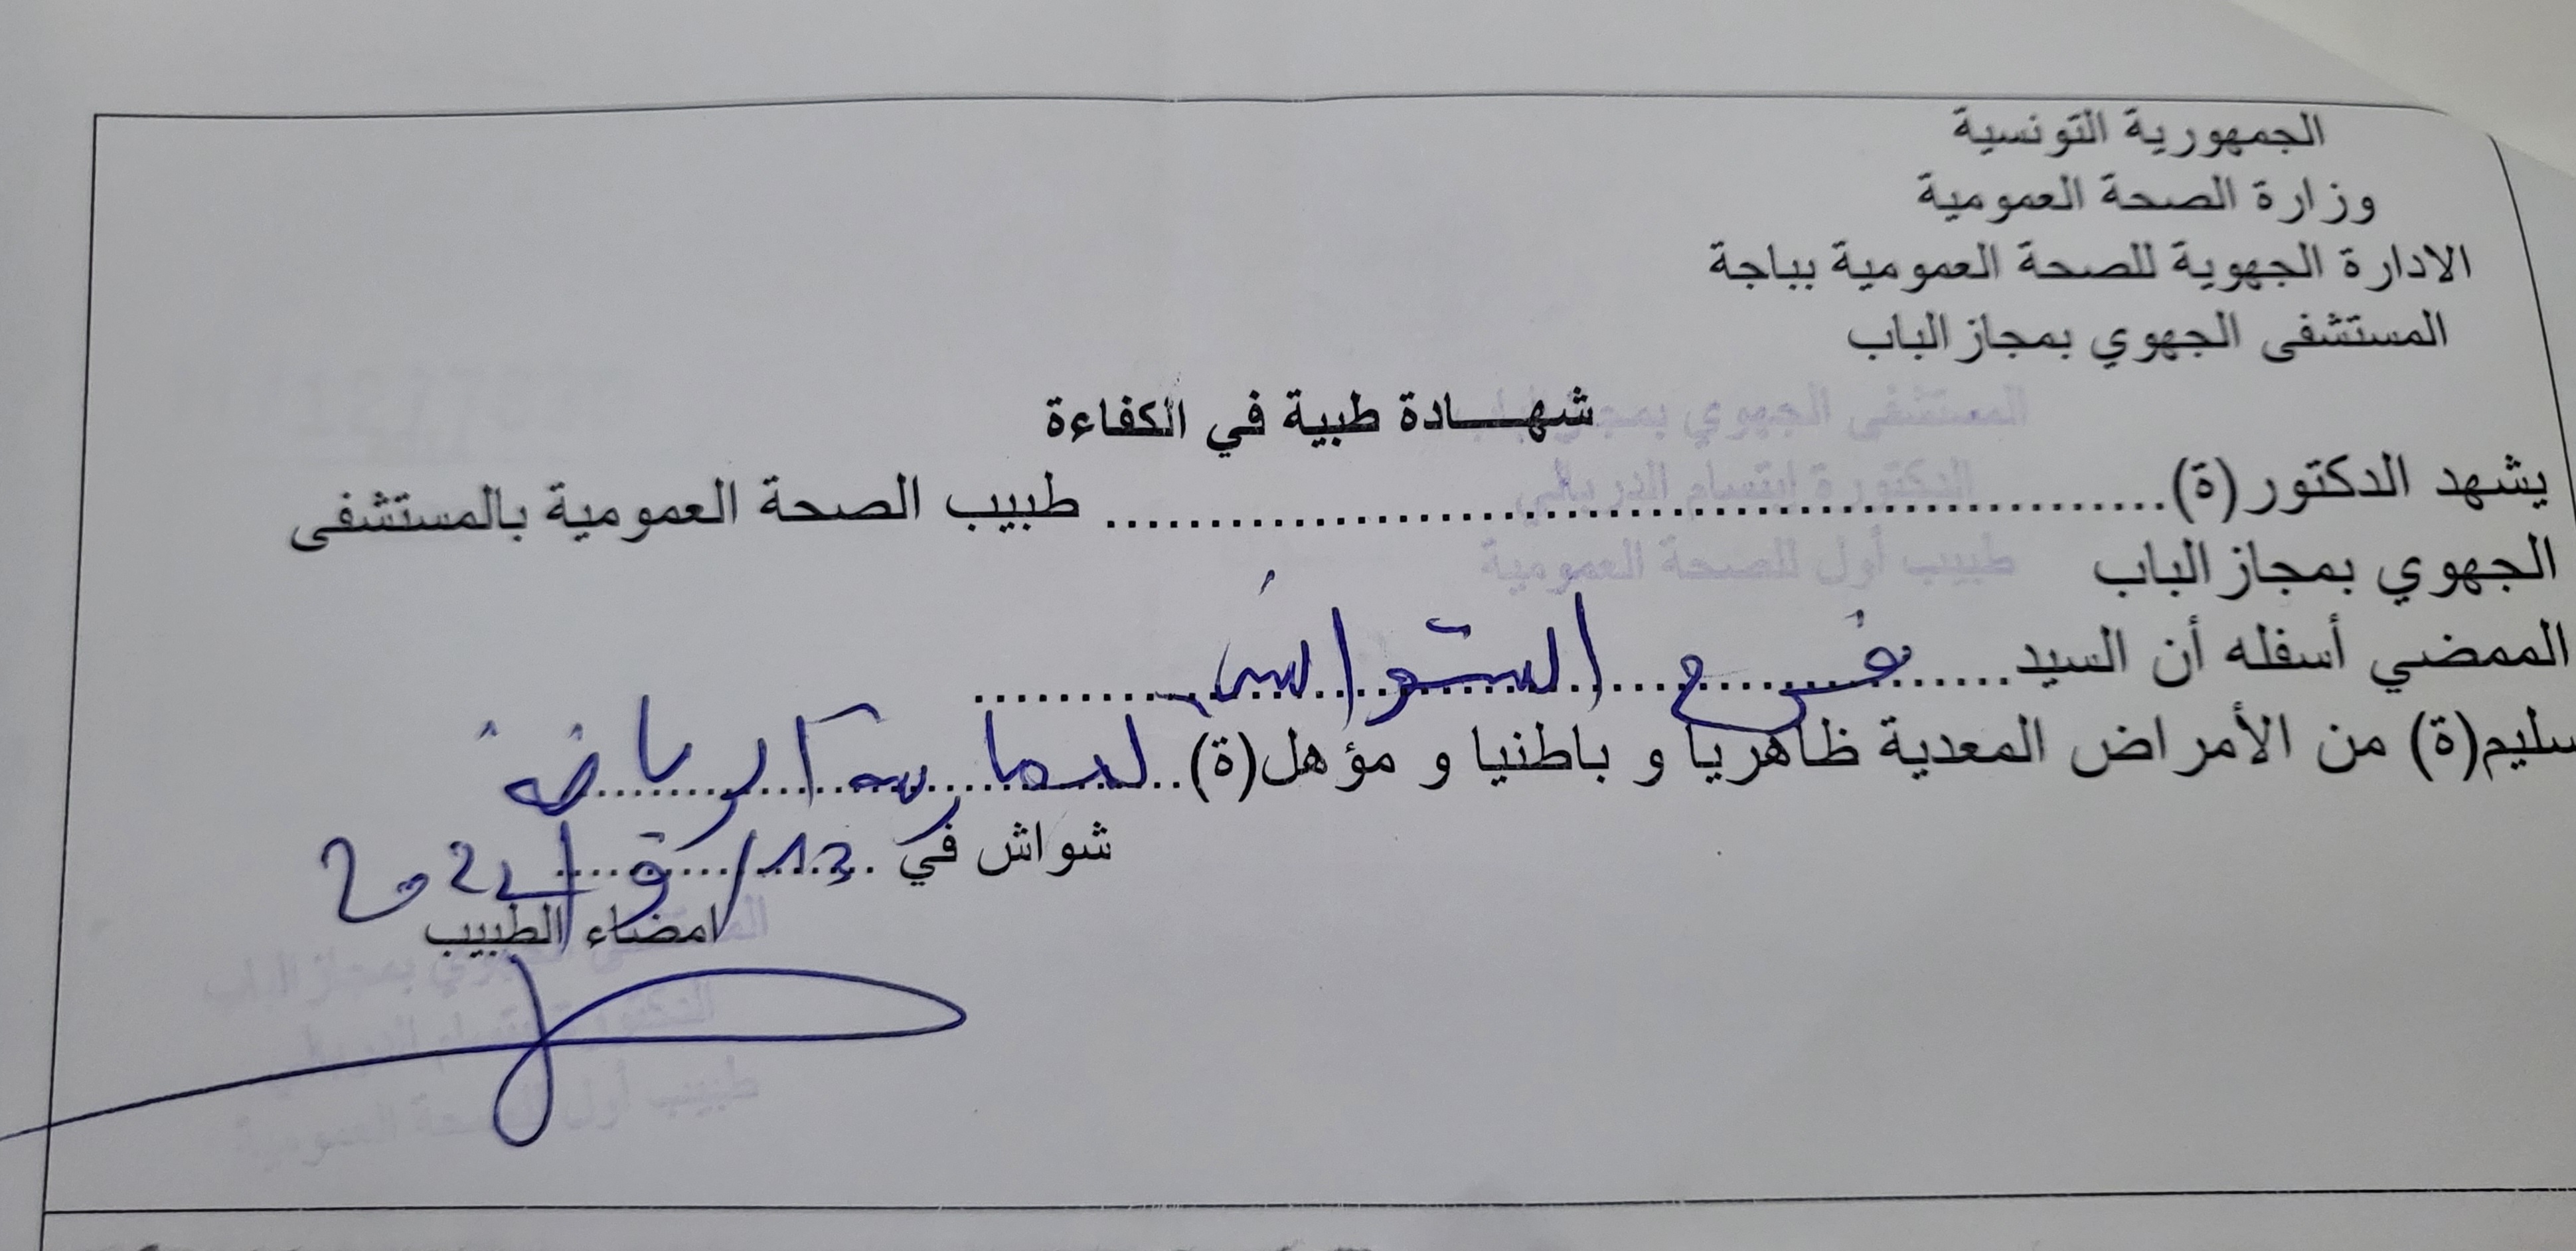 الجمهورية التونسية
وزارة الصحة العمومية
الادارة الجهوية للصحة العمومية بباجة
المستشفى الجهوي بمجاز الباب
شهـــادة طبية في الكفاءة
المستشفى الجهوي بمجاز الباب
يشهد الدكتور(ة)........................................ طبيب الصحة العمومية بالمستشفى
الدكتورة ابتسام الدربالي
طبيب أول للصحة العمومية
الجهوي بمجاز الباب
الممضي أسفله أن السيد......فرح
سليم(ة) من الأمراض المعدية ظاهريا و باطنيا و مؤهل(ة)..لممارسة الرياضة
شواش في
امضاء الطبيب
المستشفى الجهوي بمجاز الباب
الدكتورة ابتسام الدربالي
طبيب أول للصحة العمومية